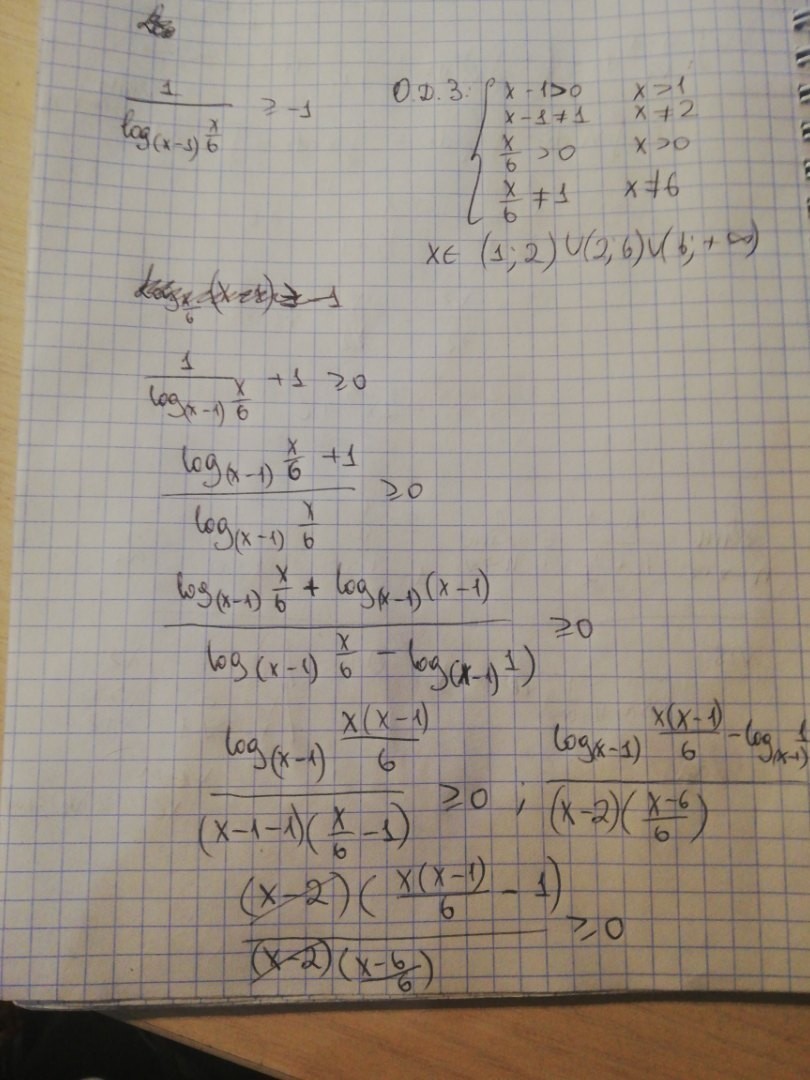 1/(log_(x-1) x/6) ≥ -1
О.Д.З: { x-1>0 x>1
x-1≠1 x≠2
x/6 >0 x>0
x/6 ≠1 x≠6
x∈ (1;2)∪(2;6)∪(6;+∞)
1/(log_(x-1) x/6) +1 ≥0
(log_(x-1) x/6 +1)/(log_(x-1) x/6) ≥0
(log_(x-1) x/6 + log_(x-1)(x-1))/(log_(x-1) x/6 - log_(x-1) 1) ≥0
(log_(x-1) x(x-1)/6)/((x-1-1)(x/6 -1)) ≥0 ; (log_(x-1) x(x-1)/6 - log_(x-1) 1)/((x-2)(x-6/6))
((x-2)(x(x-1)/6 - 1))/((x-2)(x-6/6)) ≥0